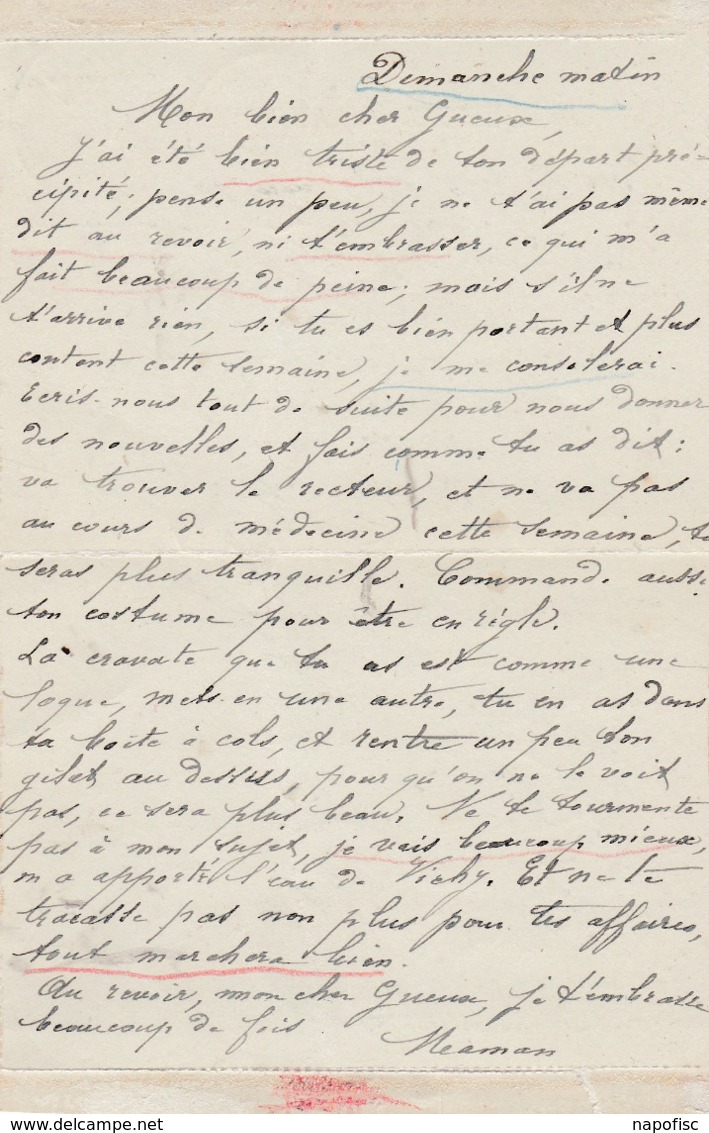 Dimanche matin
Mon bien cher Gueux,
J'ai été bien triste de ton départ pré-
cipité; pense un peu, je ne t'ai pas même
dit au revoir, ni t'embrasser, ce qui m'a
fait beaucoup de peine; mais s'il ne
t'arrive rien, si tu es bien portant et plus
content cette semaine, je me consolerai.
Ecris-nous tout de suite pour nous donner
des nouvelles, et fais comme tu as dit:
va trouver le recteur, et ne va pas
au cours de médecine cette semaine, tu
seras plus tranquille. Commande aussi
ton costume pour être en règle.
La cravate que tu as est comme une
loque, mets-en une autre, tu en as dans
ta boîte à cols, et rentre un peu ton
gilet au dessus, pour qu'on ne le voit
pas, ce sera plus beau. Ne te tourmente
pas à mon sujet, je vais beaucoup mieux,
m'a apporté l'eau de Vichy. Et ne te
tracasse pas non plus pour tes affaires,
tout marchera bien.
Au revoir, mon cher Gueux, je t'embrasse
beaucoup de fois
Maman
napofisc